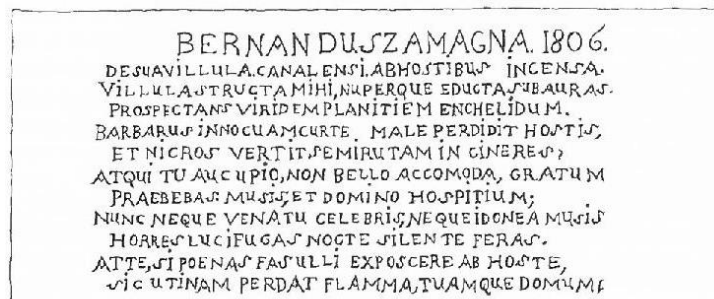 BERNANDUSZAMAGNA. 1806.
DESUAVILLULA.CANALENSI.ABHOSTIBUS INCENSA.
VILLULASTRUCTAMIHI,NUPERQUE EDUCTASUBAURAS.
PROSPECTANSVIRIDEMPLANITIEM ENCHELIDUM.
BARBARUSINNOCUAMCURTE. MALE PERDIDIT HOSTIS,
ET NICROS VERTIT,SEMIRUTAM IN CINERES;
ATQUI TU AUCUPIO,NON BELLO ACCOMODA, GRATUM
PRAEBEBAS: MUSIS,ET DOMINO HOSPITIUM;
NUNC NEQUE VENATU CELEBRIS,NEQUEIDONEA MUSIS
HORRESLUCIFUGAS NOCTE SILENTE FERAS.
ATTE,SI POENAS FASULLI EXPOSCERE AB HOSTE,
SIC UTINAM PERDAT FLAMMA,TUAMQUE DOMUM!